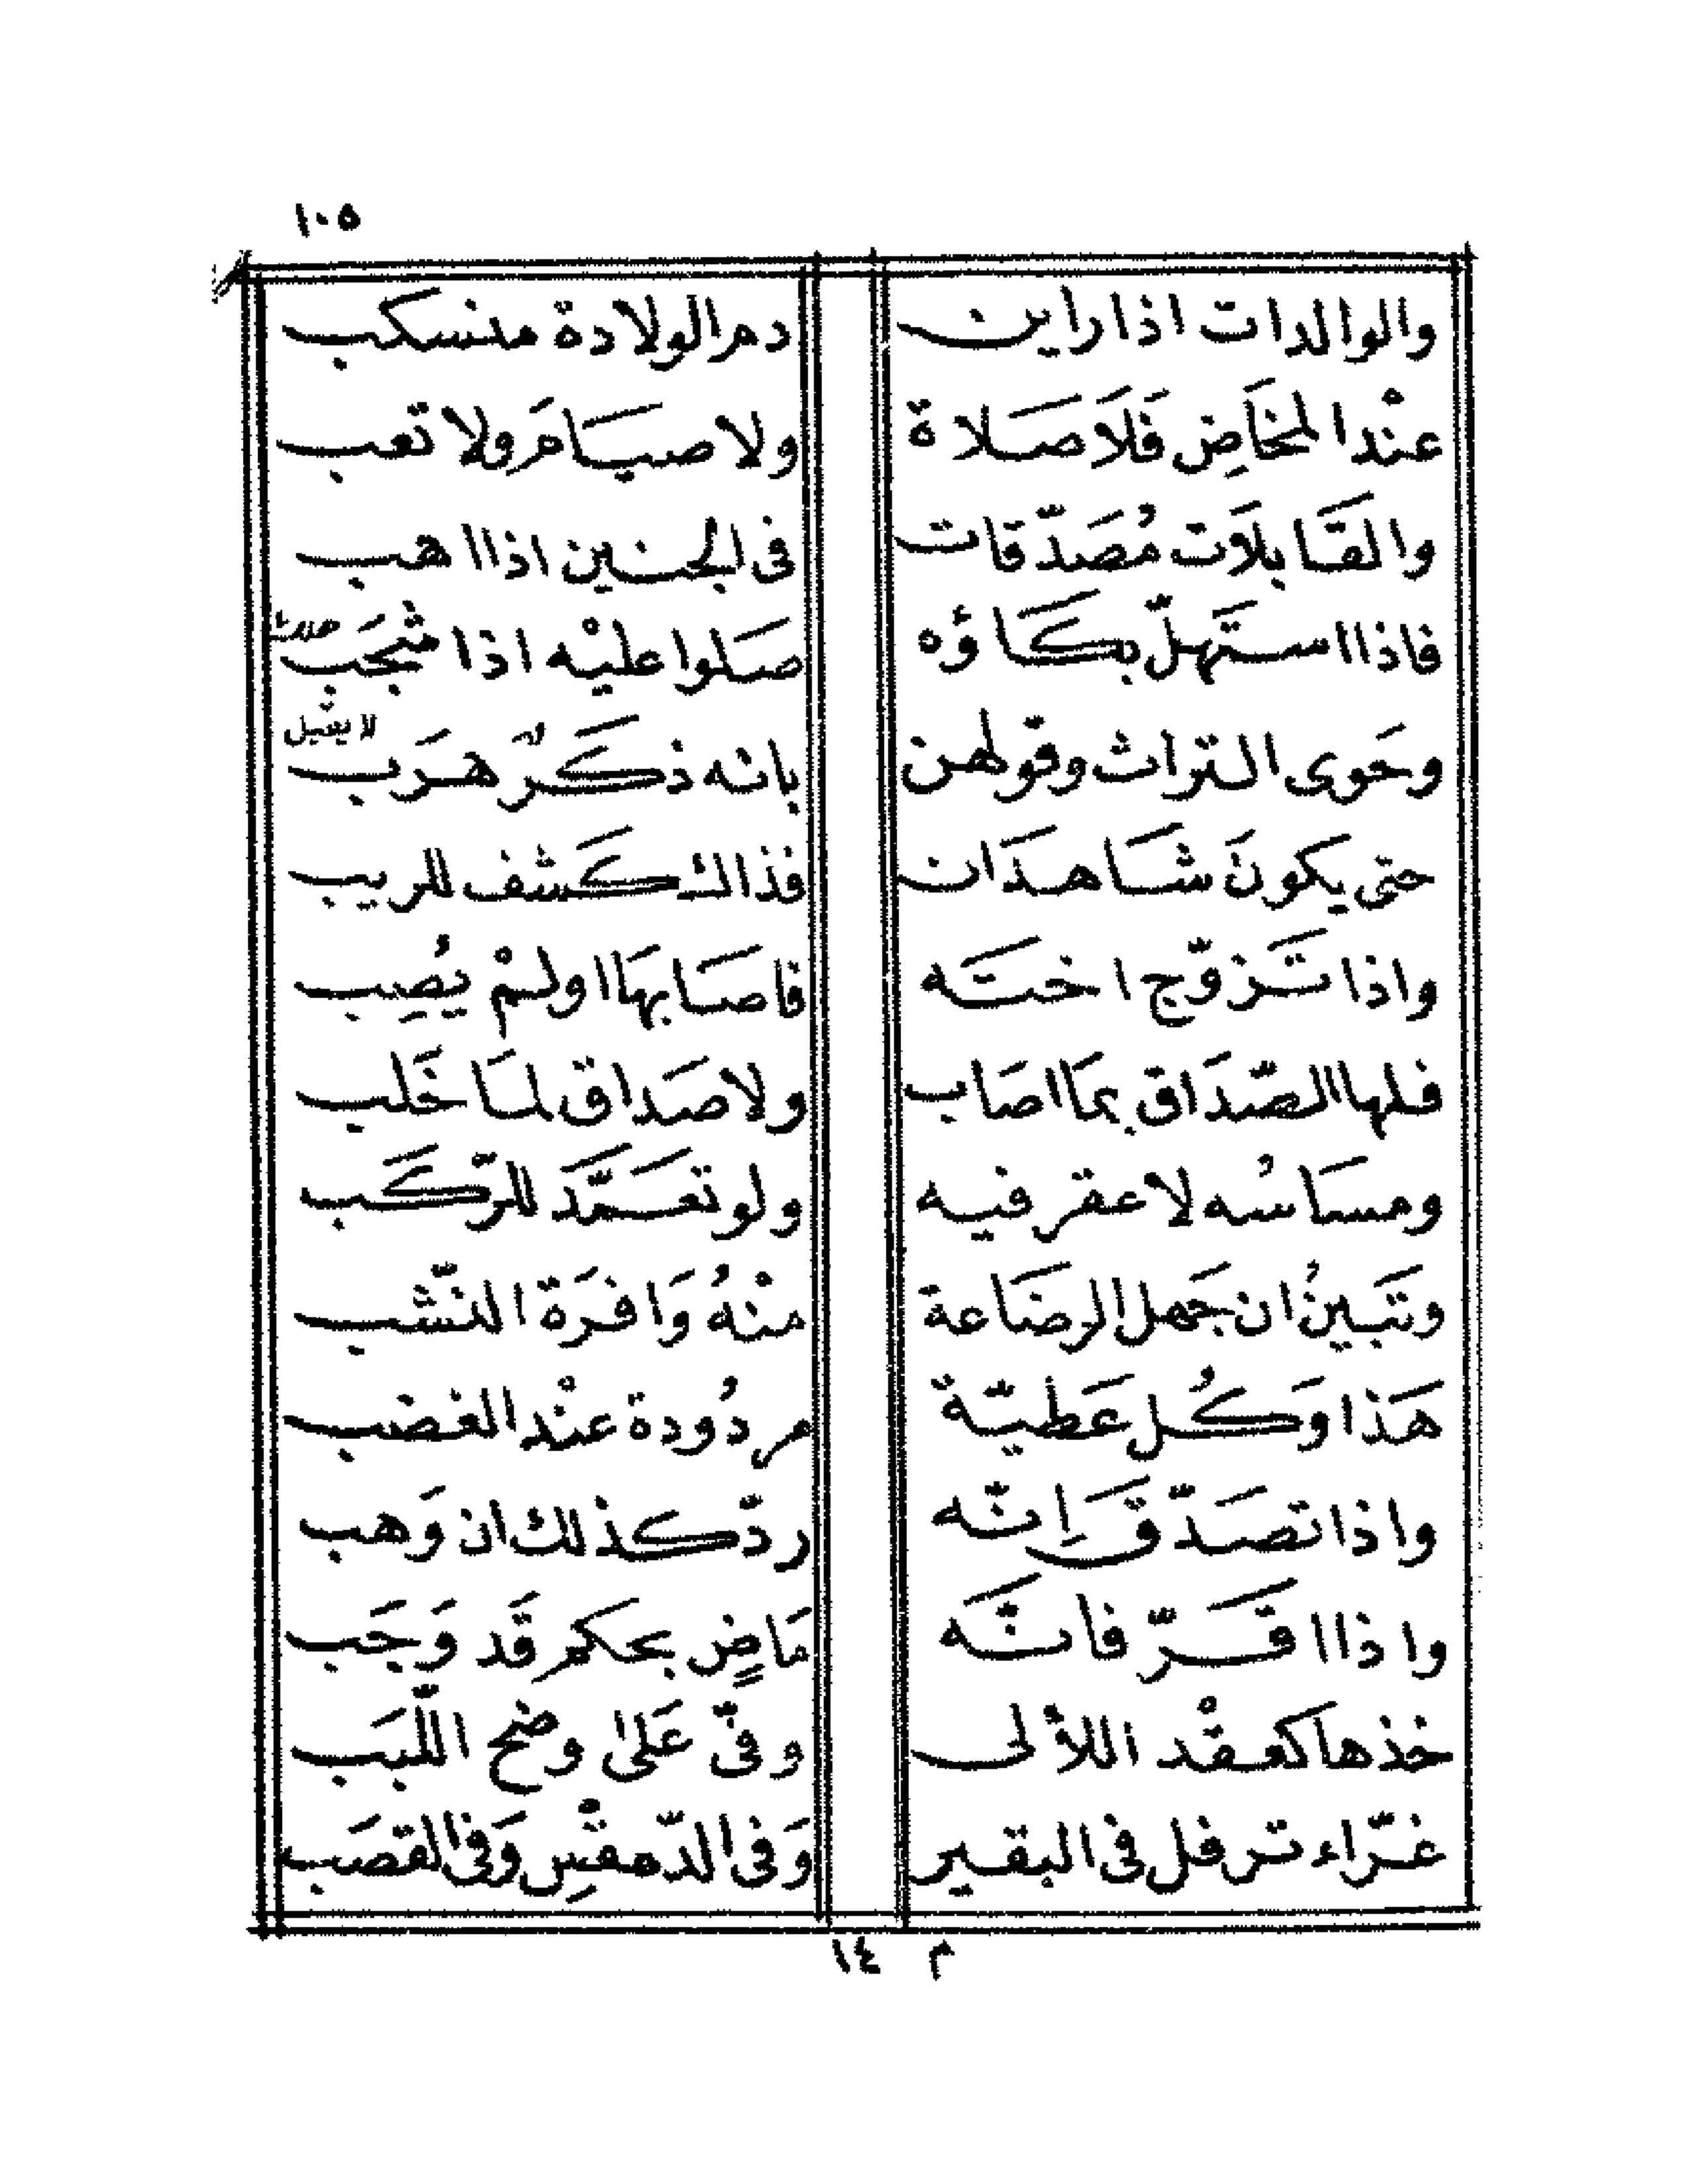 ١٠٥
والوالدات اذا راين دم الولادة منسكب
عنْد المخَاضِ فَلَا صَلاة ولا صيَامَ ولا تعب
والقَابلَات مُصَدّقات فى الجنين اذا اهب
فاذا استَهلّ بكَاؤه صَلوا عليْه اذا شجَب
هلك
وحَوى التراث وقولهن بانه ذكَرٌ هرَب
لا يقبل
حتى يكونَ شَاهدَان فذاك كَشف للريب
واذا تَزوّج اختَه فاصَابهَا اولمْ يُصِب
فلها الصّدَاق بمَا اصَاب ولا صَداق لمَا خَلب
ومسَاسُه لا عقر فيه ولو تعَمَّد للرّكَب
وتَبينُ ان جَهل الرضَاعة منْهُ وَافرَة النّشب
هَذا وَكُل عَطيّة مردُودة عنْد الغضب
واذا تصَدّقَ اِنّه ردّ كذلك ان وَهب
واذا اقَرّ فانّه مَاضٍ بحكم قَد وَجَب
خذها كعقْد اللألى وفّى عَلىٰ وضح اللّبَب
غرّاء ترفل فى البقير وَفى الدّمقْسِ وَفى القصَب
م ١٤